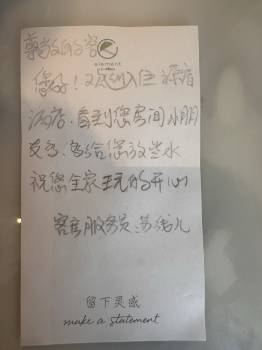 尊敬的客
element
您好！欢迎入住
酒店，看到您房间小朋
友，给您放些水
祝您全家玩的开心
客房服务员：
留下灵感
make a statement